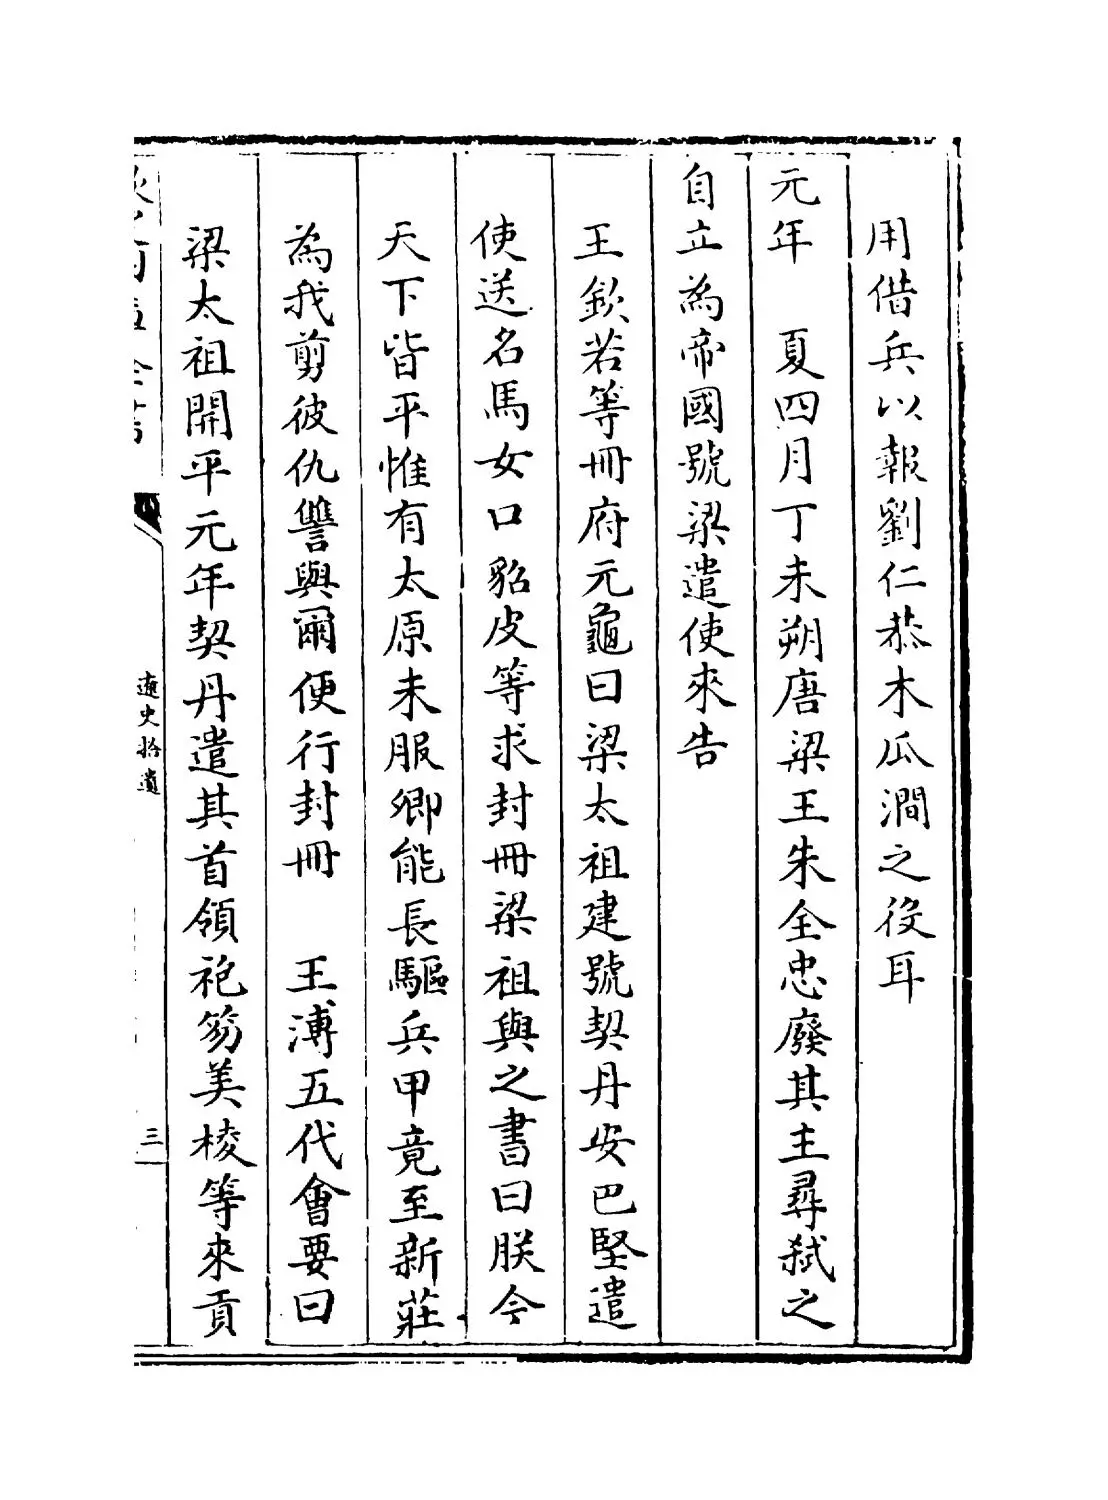 用借兵以報劉仁恭木瓜澗之役耳
元年　夏四月丁未朔唐梁王朱全忠廢其主尋弑之
自立為帝國號梁遣使來告
王欽若等冊府元龜曰梁太祖建號契丹安巴堅遣
使送名馬女口貂皮等求封冊梁祖與之書曰朕今
天下皆平惟有太原未服卿能長驅兵甲竟至新莊
為我剪彼仇讐與爾便行封冊　王溥五代會要曰
梁太祖開平元年契丹遣其首領袍笏美棱等來貢
遼史拾遺
三